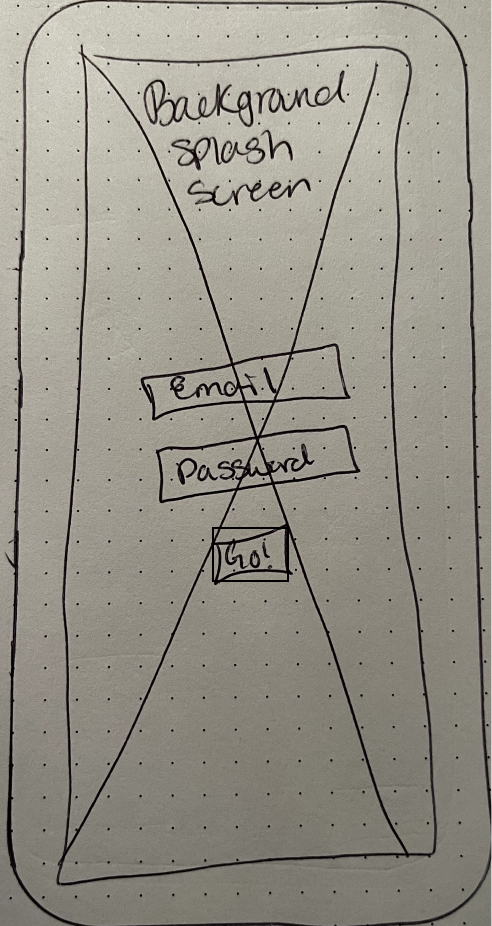 Background
splash
screen
Email
Password
Go!